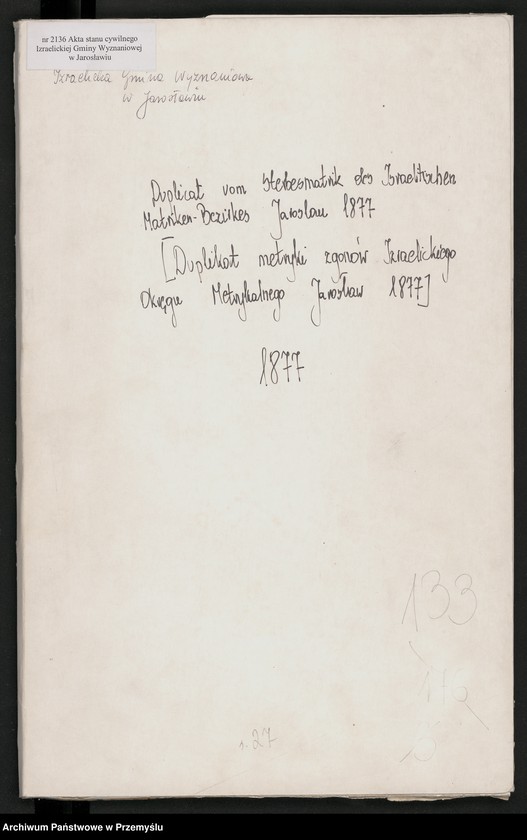 nr 2136 Akta stanu cywilnego
Izraelickiej Gminy Wyznaniowej
w Jarosławiu
Izraelicka Gmina Wyznaniowa
w Jarosławiu
Duplicat vom Sterbesmatrik des Israelitischen
Matriken-Bezirkes Jaroslau 1877
[Duplikat metryki zgonów Izraelickiego
Okręgu Metrykalnego Jarosław 1877]
1877
133
27
Archiwum Państwowe w Przemyślu